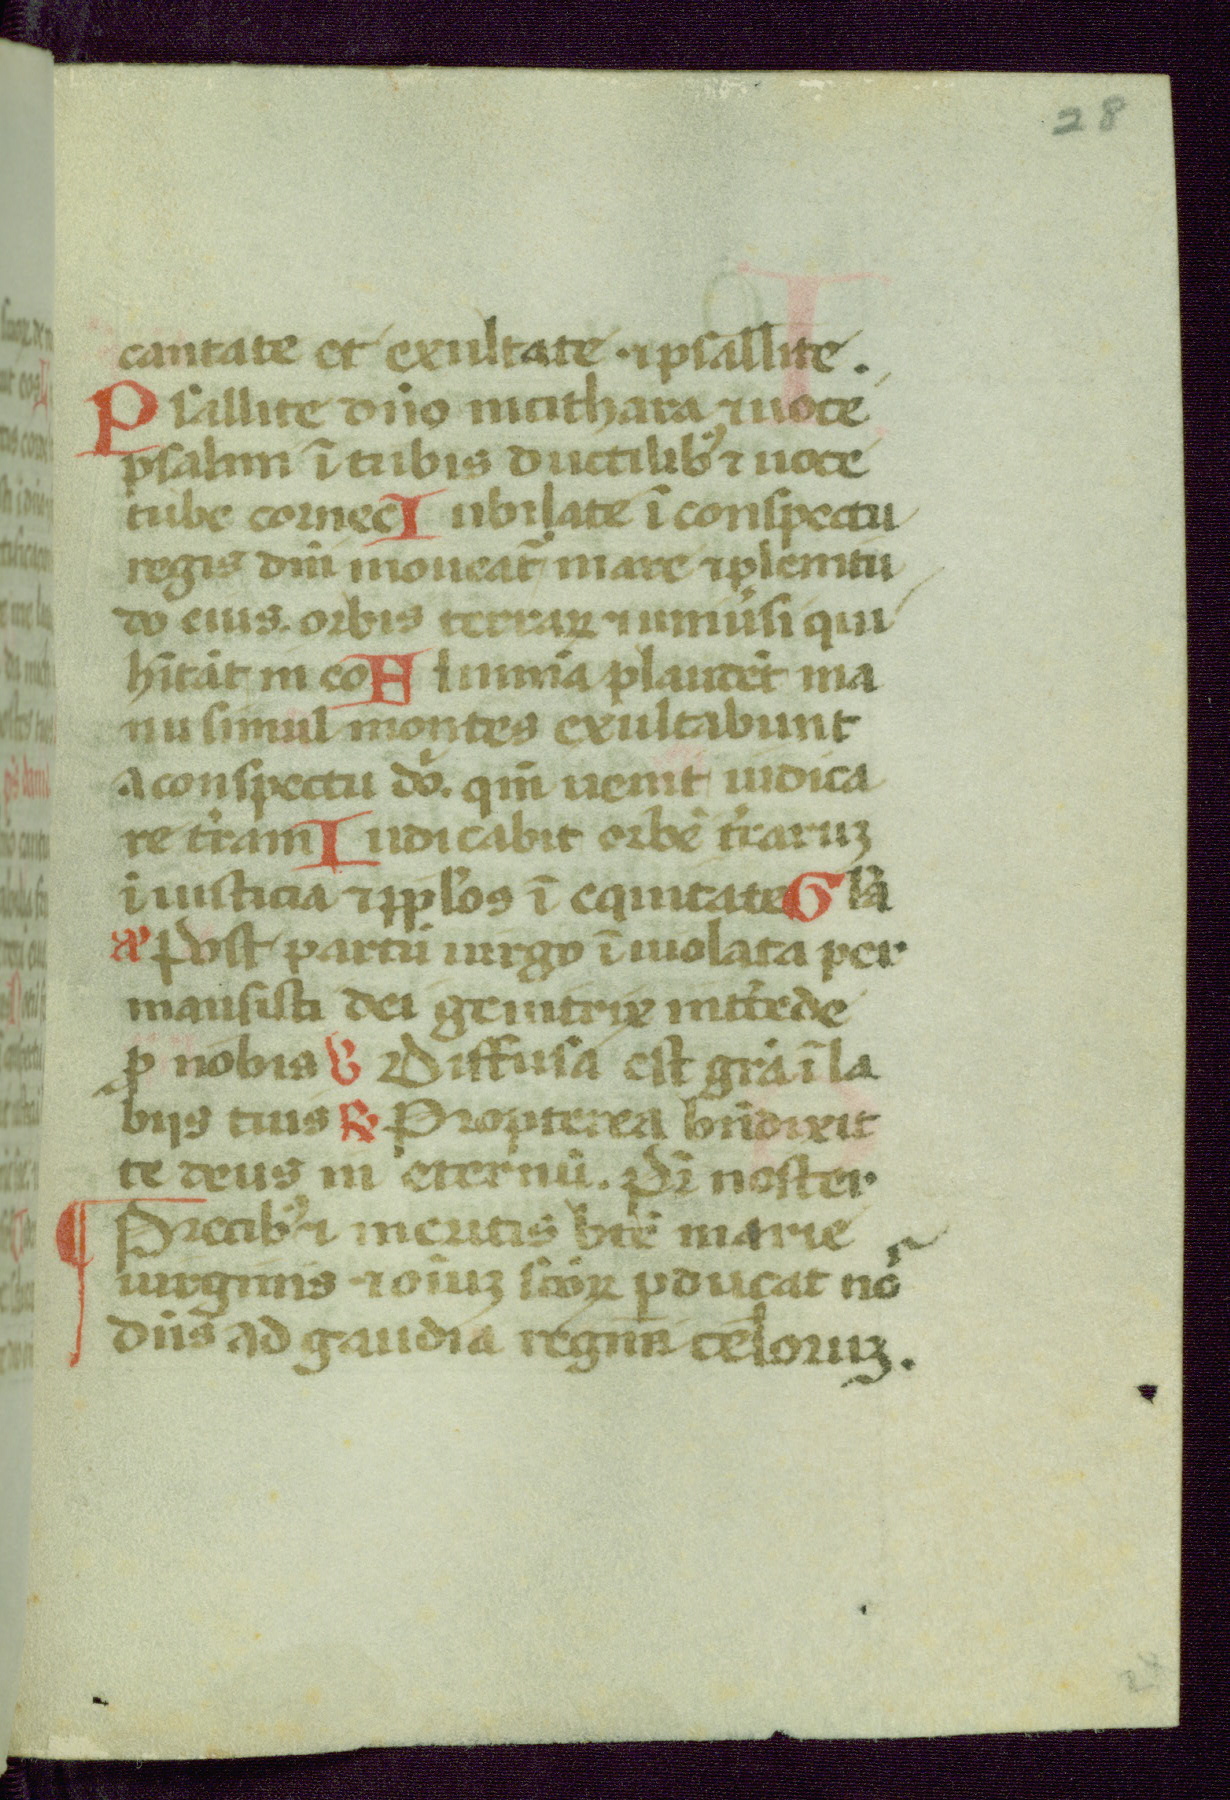 28
cantate et exultate ⁊ psallite.
Psallite dño in cithara ⁊ uoce
psalmi ī tubis ductilibꝰ ⁊ uoce
tube corneeIubilate ī conspectu
regis dñi moueat̃ mare ⁊ plenitu
do eius. orbis terraꝝ ⁊ uniũsi qui
hĩtãt in eoFlumina plaudẽt ma
nu simul montes exultabunt
a conspectu dõ. qm̃ uenit iudica
re tr̃amIudicabit orbẽ tr̃aruꝫ
ī iusticia ⁊ pplõs ī equitateGlã
añPost partũ uirgo īuiolata per
mansisti dei genitrix int̃cede
ꝓ nobis ℣ Diffusa est grã ī la
bijs tuis ℟ Propterea bñdixit
te deus in eternũ. Pr̃ noster
¶ Precibꝰ ⁊ meritis btẽ marie
uirginis ⁊ oĩuꝫ sc̃oꝝ ꝑducat nõ
dñs ad gaudia regnũ celoruꝫ.